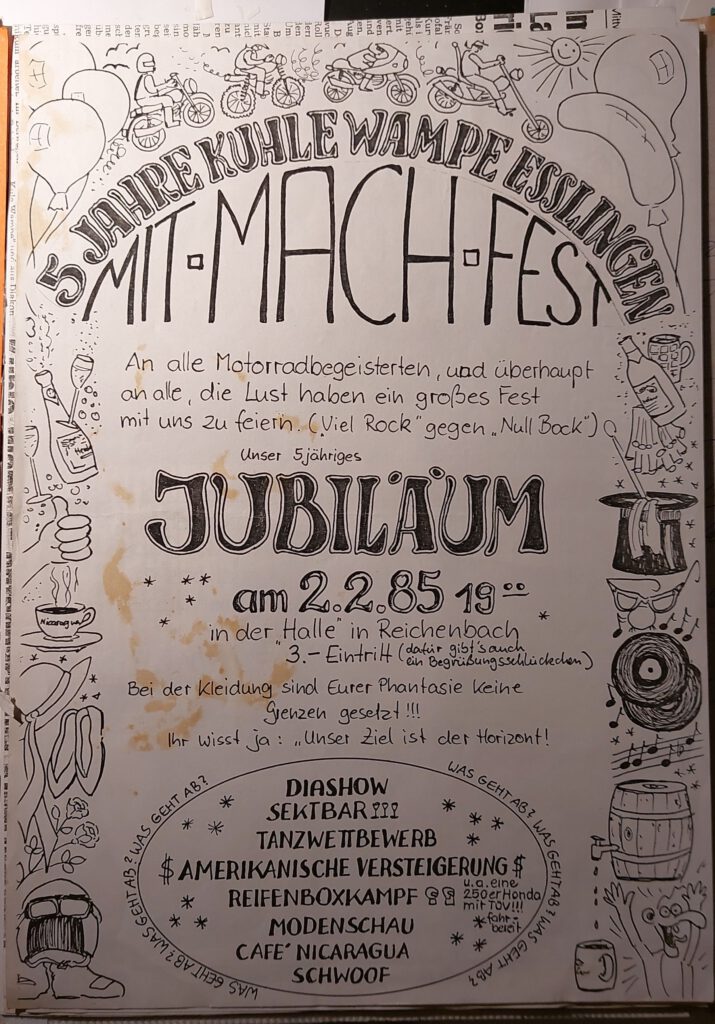 5 JAHRE KUHLE WAMPE ESSLINGEN
MIT·MACH·FEST
An alle Motorradbegeisterten, und überhaupt
an alle, die Lust haben ein großes Fest
mit uns zu feiern. („Viel Rock" gegen „Null Bock")
Unser 5jähriges
JUBILÄUM
am 2.2.85 19°°
in der "Halle" in Reichenbach
3.- Eintritt (dafür gibt's auch
ein Begrüßungsschlückchen)
Nicaragua
Bei der Kleidung sind Eurer Phantasie keine
Grenzen gesetzt!!!
Ihr wisst ja: „Unser Ziel ist der Horizont!
WAS GEHT AB? WAS GEHT AB? WAS GEHT AB? WAS GEHT AB?
WAS GEHT AB? WAS GEHT AB? WAS GEHT AB? WAS GEHT AB?
DIASHOW
SEKTBAR
TANZWETTBEWERB
$ AMERIKANISCHE VERSTEIGERUNG $
u.a. eine
250er Honda
mit TÜV!!!
fahr-
bereit
REIFENBOXKAMPF
MODENSCHAU
CAFE' NICARAGUA
SCHWOOF